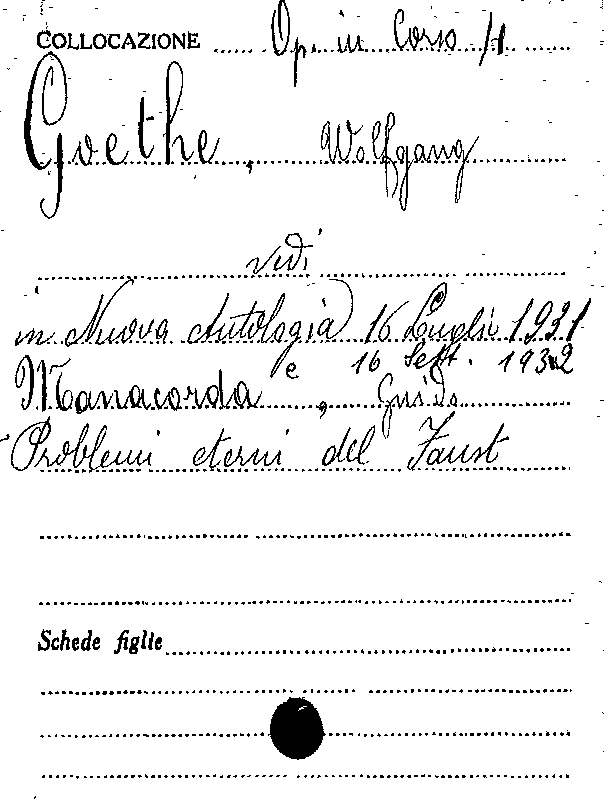 COLLOCAZIONE Op. in Corso /1
Goethe, Wolfgang
vedi
in Nuova Antologia 16 Luglio 1931
e 16 Sett. 1932
Manacorda, Guido
Problemi eterni del Faust
Schede figlie